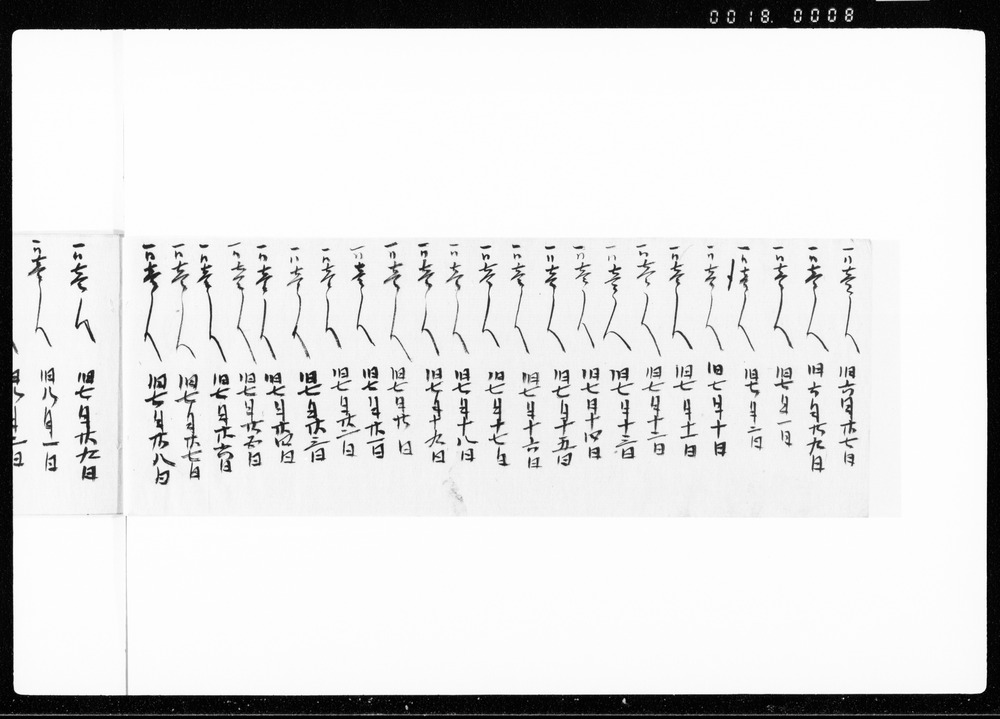 0018.0008
一 壱人 旧六月廿七日
一 壱人 旧六月廿九日
一 壱人 旧七月一日
一 壱人 旧七月二日
一 壱人 旧七月十日
一 壱人 旧七月十一日
一 壱人 旧七月十二日
一 壱人 旧七月十三日
一 壱人 旧七月十四日
一 壱人 旧七月十五日
一 壱人 旧七月十六日
一 壱人 旧七月十七日
一 壱人 旧七月十八日
一 壱人 旧七月十九日
一 壱人 旧七月廿日
一 壱人 旧七月廿一日
一 壱人 旧七月廿二日
一 壱人 旧七月廿三日
一 壱人 旧七月廿四日
一 壱人 旧七月廿五日
一 壱人 旧七月廿六日
一 壱人 旧七月廿七日
一 壱人 旧七月廿八日
一 壱人 旧七月廿九日
一 壱人 旧八月一日